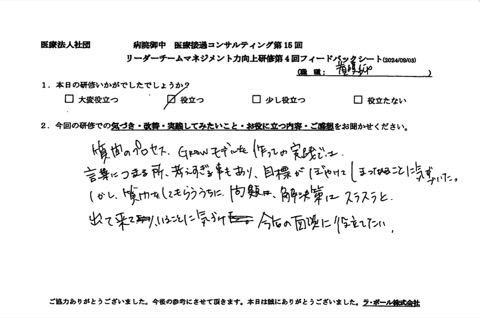 医療法人社団　　　　病院御中　医療接遇コンサルティング第15回
リーダーチームマネジメント力向上研修第4回フィードバックシート(2024/09/03)
(職種:看護師)
1．本日の研修いかがでしたでしょうか?
□ 大変役立つ　□ 役立つ　□ 少し役立つ　□ 役立たない
2．今回の研修での気づき・改善・実践してみたいこと・お役に立つ内容・ご感想をお聞かせください。
質問のプロセス、Growモデルを使っての実践では
言葉につまる所、考えすぎる事もあり、目標がぼやけてしまってることに気づいた。
しかし、質問をしてもらううちに、問題、解決策はスラスラと
出て来ていることに気づけ 今後の面談に役立てたい。
ご協力ありがとうございました。今後の参考にさせて頂きます。本日は誠にありがとうございました。ラ・ポール株式会社